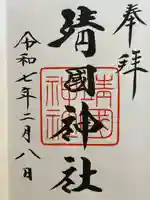 奉拝
靖國神社
靖國神社
令和七年二月八日